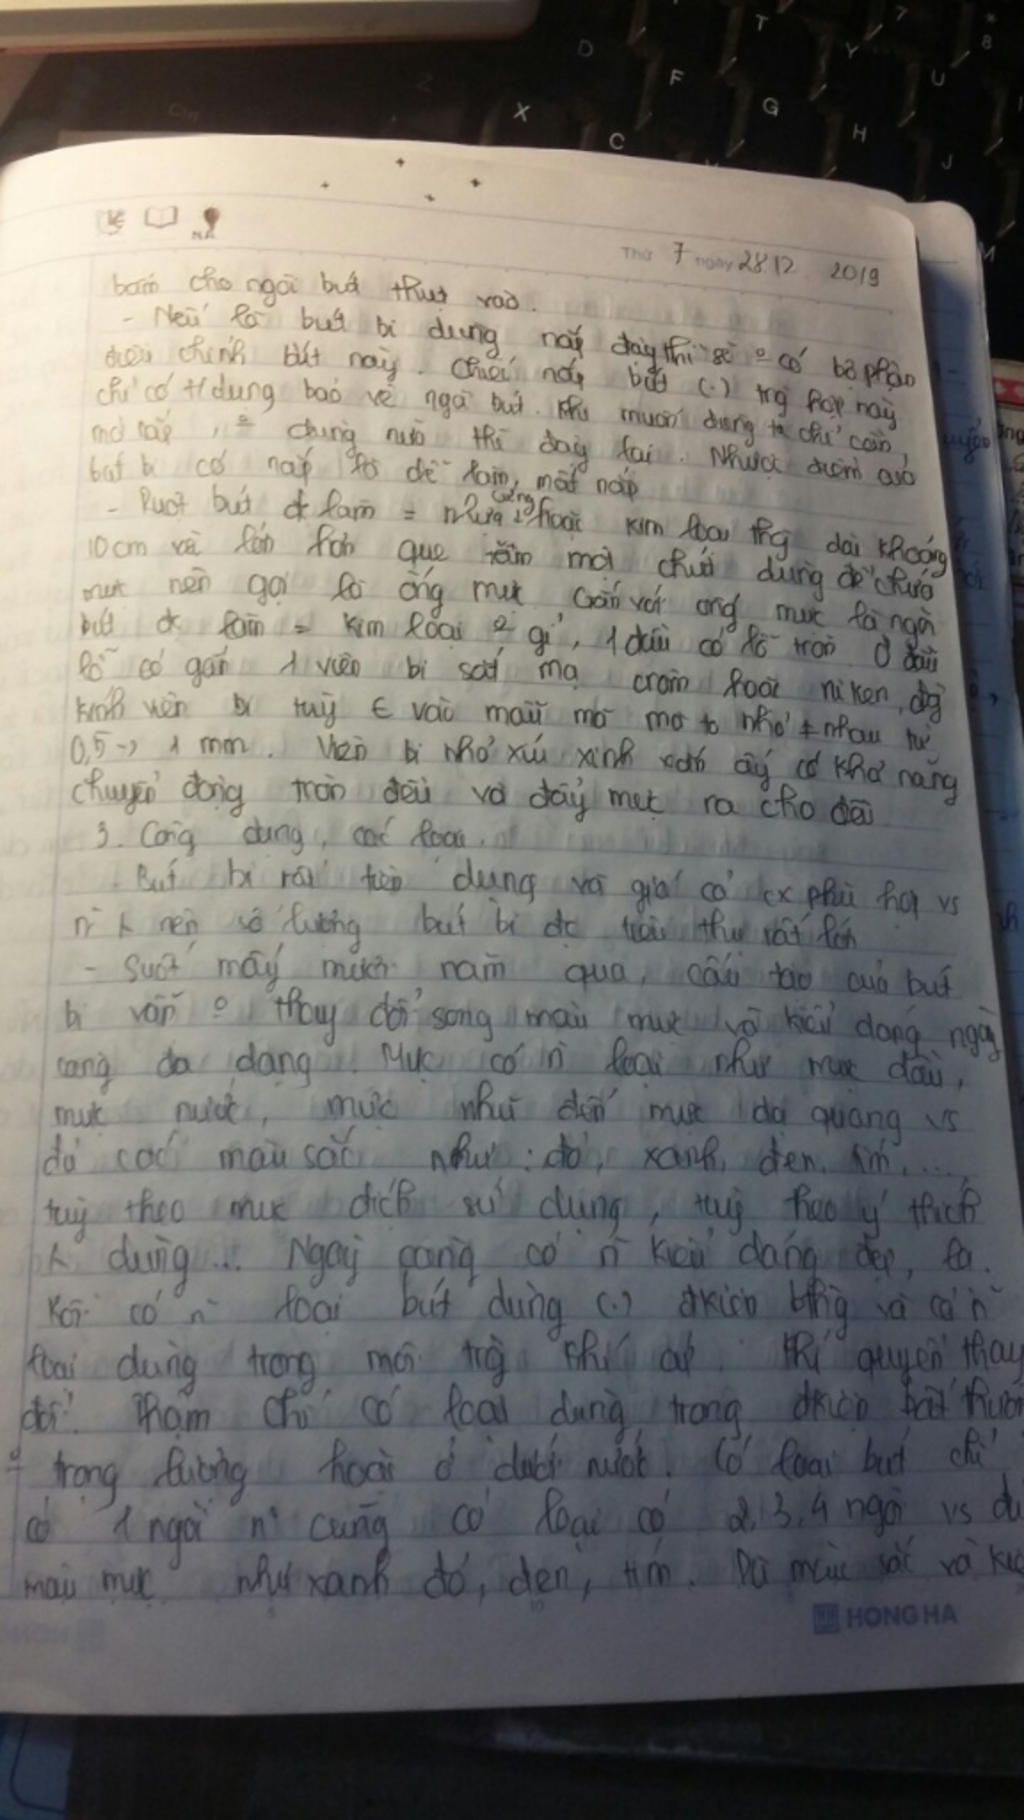 T
7
8
D
F
Y
U
X
G
H
C
J
M
Thứ 7 ngày 28.12 2019
bấm cho ngòi bút thụt vào.
- Nếu là bút bi dùng nắp đậy thì sẽ o có bộ phận
điều chỉnh bút này. Chiếc nắp bút (.) trg hợp này
chỉ có t/dụng bảo vệ ngòi bút. Khi muốn dùng ta chỉ cần
mở nắp, o dùng nữa thì đậy lại. Nhược điểm của
bút bi có nắp là dễ làm mất nắp
- Ruột bút đc làm = nhựa cứng hoặc kim loại thg dài khoảng
10cm và lớn hơn que tăm một chút dùng để chứa
mực nên gọi là ống mực. Gắn với ống mực là ngòi
bút đc làm = kim loại o gỉ, 1 đầu có lỗ tròn. Ở đầu
lỗ có gắn 1 viên bi sắt mạ crôm hoặc niken, đg
kính viên bi tuỳ ∈ vào mẫu mã mà to nhỏ ≠ nhau từ
0,5 -> 1 mm. Viên bi nhỏ xíu xinh xắn ấy có khả năng
chuyển động tròn đều và đẩy mực ra cho đều
3. Công dụng, các loại.
- Bút bi rất tiện dụng và giá cả cx phù hợp vs
nên số lượng bút bi đc tiêu thụ rất lớn
- Suốt mấy mươi năm qua, cấu tạo của bút
bi vẫn o thay đổi song màu mực và kiểu dáng ngày
càng đa dạng. Mực có n` loại như mực dầu,
mực nước, mực nhũ đến mực dạ quang vs
đủ các màu sắc như: đỏ, xanh, đen, tím, ...
tuỳ theo mục đích sử dụng, tuỳ theo ý thích
dùng... Ngày càng có n` kiểu dáng đẹp, lạ.
Rồi có n` loại bút dùng (.) đkiện bthg và có n`
loại dùng trong môi trg khí áp khí quyển thay
đổi. Thậm chí có loại dùng trong đkiện bất thườn
o trọng lượng hoặc ở dưới nước. Có loại bút chỉ
có 1 ngòi n` cũng có loại có 2, 3, 4 ngòi vs đủ
màu mực như xanh đỏ, đen, tím. Dù màu sắc và kiể
HONG HA